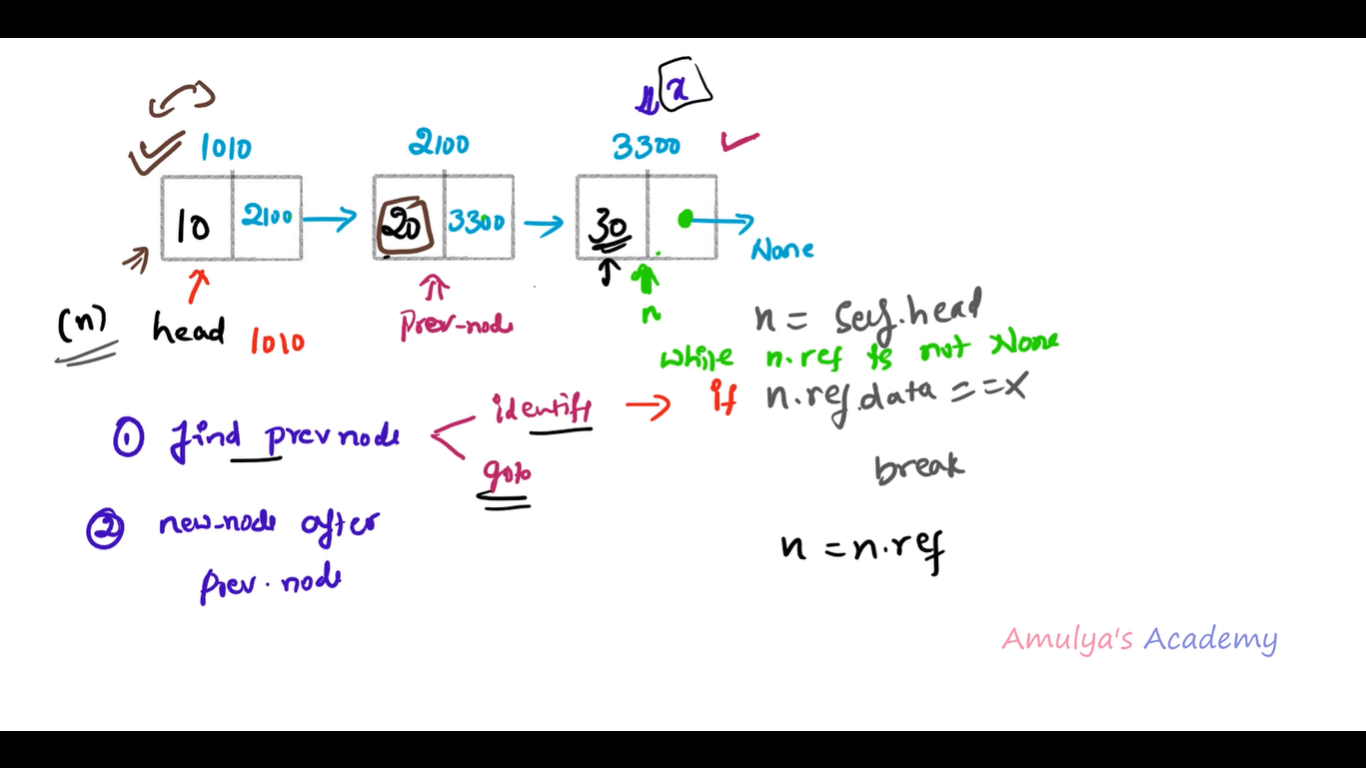 x
1010
2100
3300
10
2100
20
3300
30
None
(n)
head
1010
Prev-node
n
n = self.head
while n.ref is not None
if n.ref.data == x
break
n = n.ref
① find prev node
identify
goto
② new-node after
prev.node
Amulya's Academy